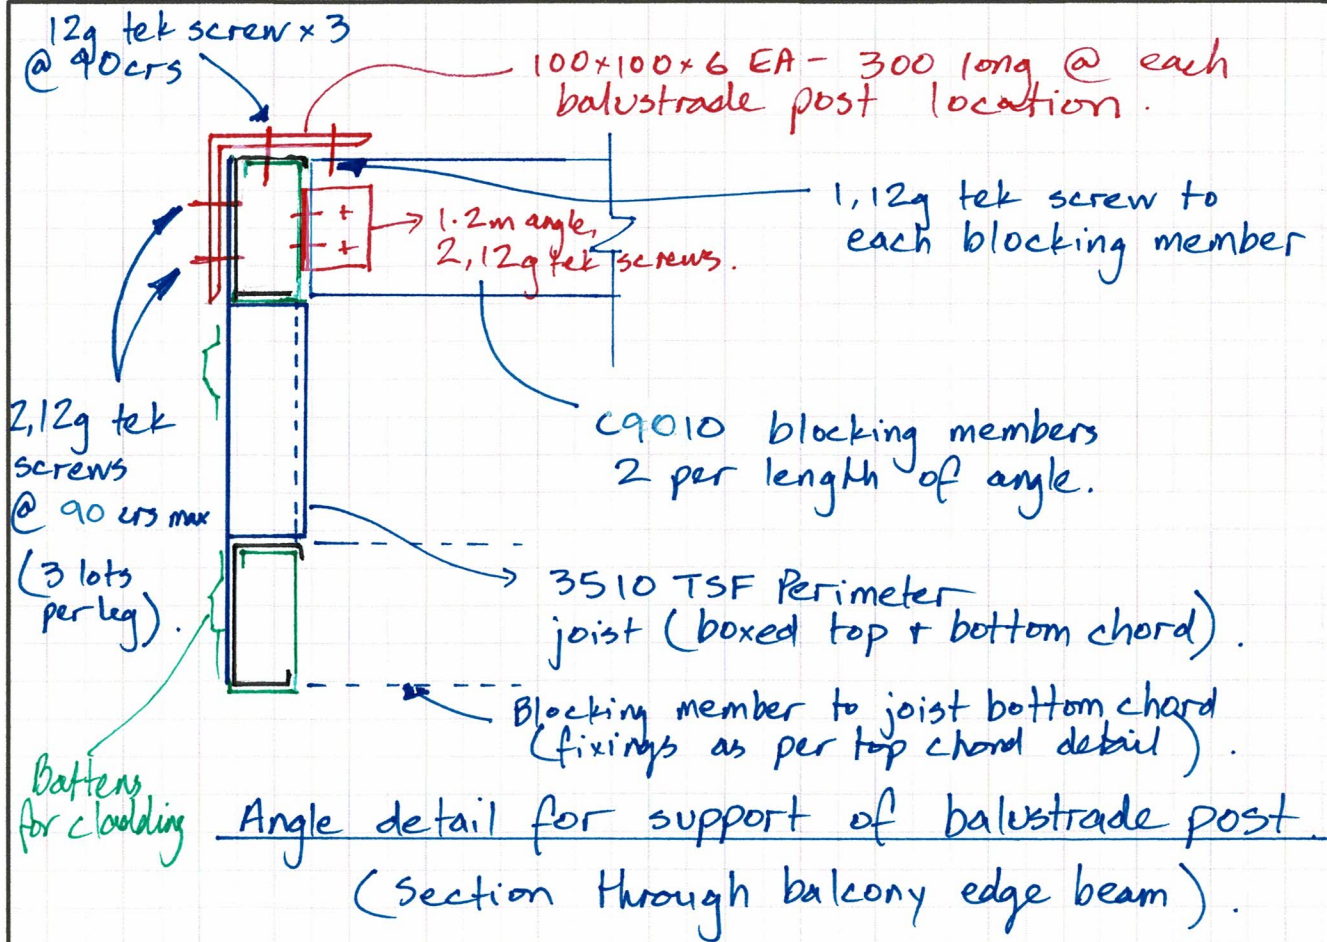 12g tek screw x 3
@ 90crs
100x100x6 EA - 300 long @ each
balustrade post location.
1,12g tek screw to
each blocking member
1.2m angle,
2,12g tek screws.
2,12g tek
screws
@ 90 crs max
(3 lots
per leg).
C9010 blocking members
2 per length of angle.
3510 TSF Perimeter
joist (boxed top + bottom chord).
Blocking member to joist bottom chord
(fixings as per top chord detail).
Battens
for cladding
Angle detail for support of balustrade post.
(section through balcony edge beam).